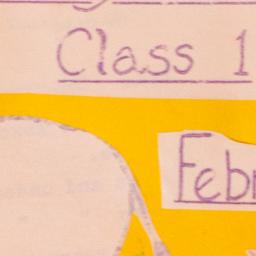 Class 1
Febr